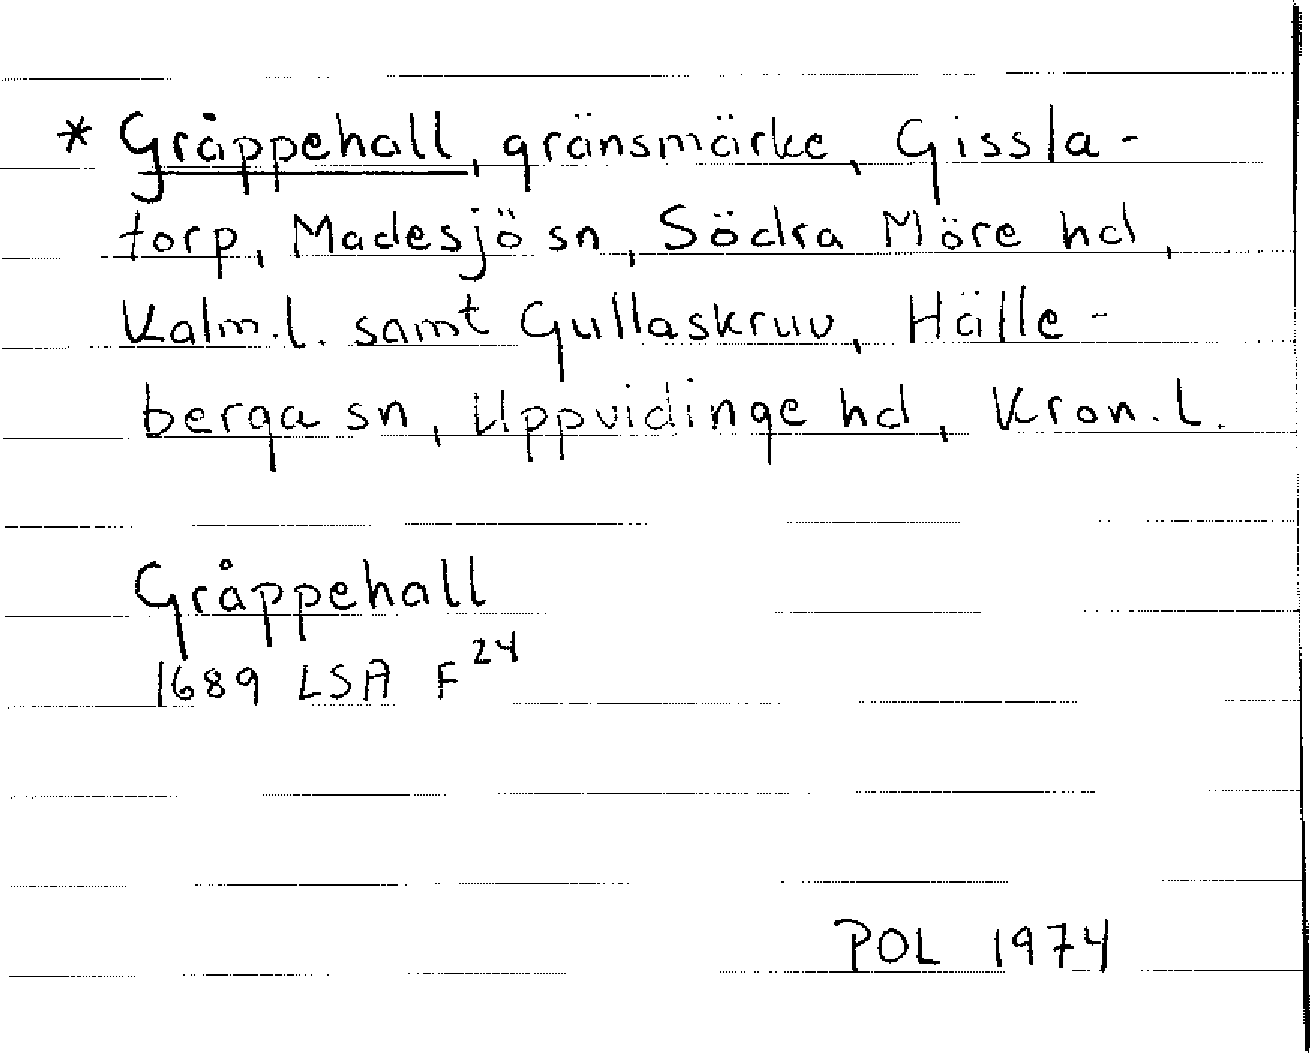 * Gråppehall, gränsmärke, Gissla-
torp, Madesjö sn, Södra Möre hd,
Kalm.l. samt Gullaskruv, Hälle-
berga sn, Uppvidinge hd, Kron.l.
Gråppehall
1689 LSA F24
POL 1974